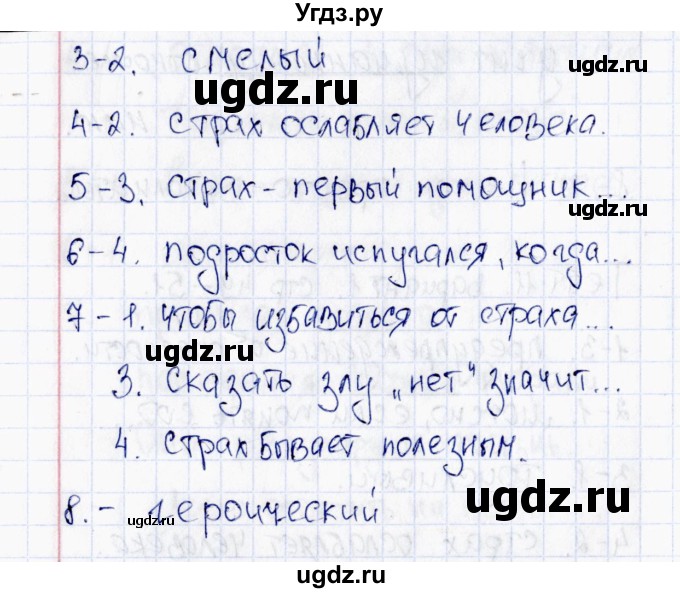 Угдз.ру
3-2. смелый
ugdz.ru
ugdz.ru
4-2. страх ослабляет человека.
5-3. Страх - первый помощник...
ugdz.ru
6-4. Подросток испугался, когда...
7-1. Чтобы избавиться от страха...
ugdz.ru
3. Сказать злу „нет" значит...
4. Страх бывает полезным.
ugdz.ru
8. - героический
ugdz.ru
ugdz.ru